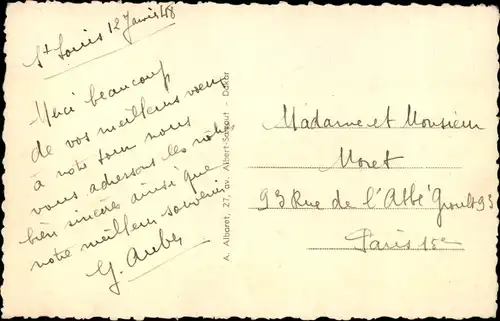 St Louis 12 Janvier 48
Merci beaucoup
de vos meilleurs voeux
à notre tour nous
vous adressons les nôtres
bien sincères ainsi que
notre meilleur souvenir
G.
A. Albaret, 27, av. Albert-Sarraut - Dakar
Madame et Monsieur
Moret
93 Rue de l'Abbé Groult 93
Paris 15e